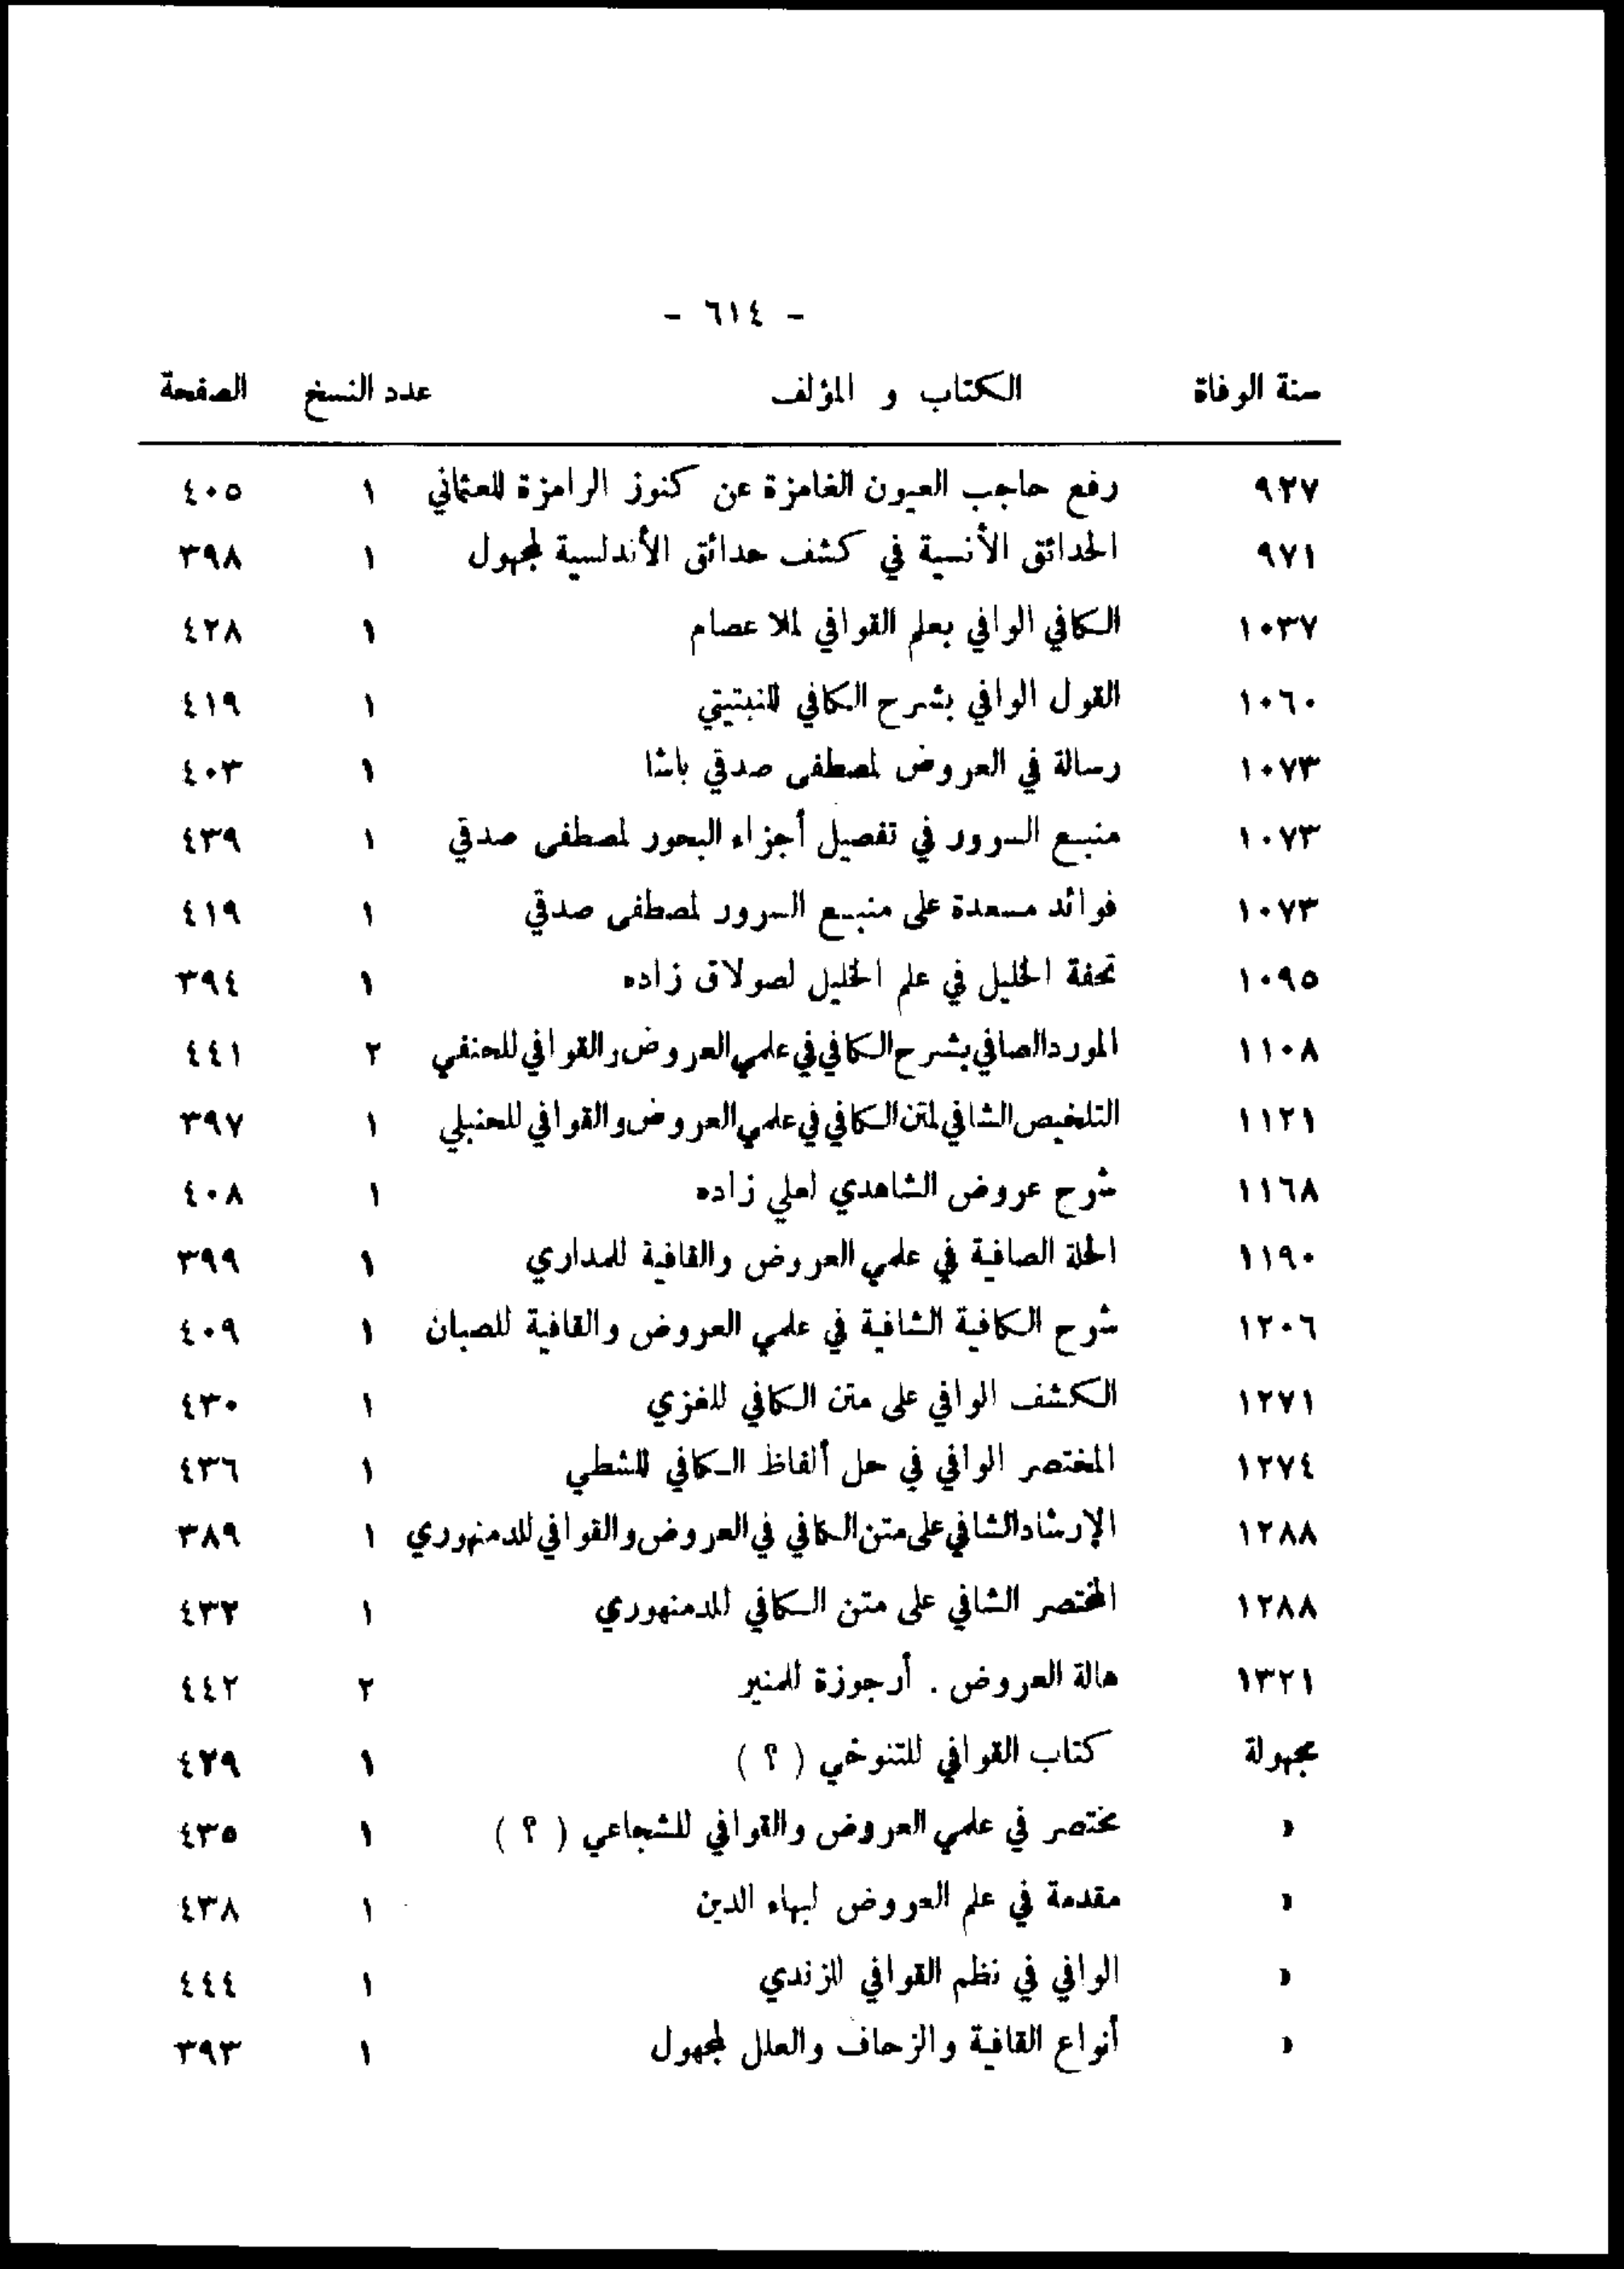 - ٦١٤ -
سنة الوفاة الكتاب و المؤلف عدد النسخ الصفحة
٩٢٧ رفع حاجب العيون الغامزة عن كنوز الرامزة للعثماني ١ ٤٠٥
٩٧١ الحدائق الأنسية في كشف حدائق الأندلسية لمجهول ١ ٣٩٨
١٠٣٧ الكافي الوافي بعلم القوافي لملا عصام ١ ٤٢٨
١٠٦٠ القول الوافي بشرح الكافي للنبتيتي ١ ٤١٩
١٠٧٣ رسالة في العروض لمصطفى صدقي باشا ١ ٤٠٣
١٠٧٣ منبع السرور في تفصيل أجزاء البحور لمصطفى صدقي ١ ٤٣٩
١٠٧٣ فوائد مسعدة على منبع السرور لمصطفى صدقي ١ ٤١٩
١٠٩٥ تحفة الخليل في علم الخليل لصولاق زاده ١ ٣٩٤
١١٠٨ المورد الصافي بشرح الكافي في علمي العروض والقوافي للحنفي ٢ ٤٤١
١١٢١ التلخيص الشافي لمتن الكافي في علمي العروض والقوافي للحنبلي ١ ٣٩٧
١١٦٨ شرح عروض الشاهدي لعلي زاده ١ ٤٠٨
١١٩٠ الحلة الصافية في علمي العروض والقافية للمداري ١ ٣٩٩
١٢٠٦ شرح الكافية الشافية في علمي العروض والقافية للصبان ١ ٤٠٩
١٢٧١ الكشف الوافي على متن الكافي للغزي ١ ٤٣٠
١٢٧٤ المختصر الوافي في حل ألفاظ الكافي للشطي ١ ٤٣٦
١٢٨٨ الإرشاد الشافي على متن الكافي في العروض والقوافي للدمنهوري ١ ٣٨٩
١٢٨٨ المختصر الشافي على متن الكافي للدمنهوري ١ ٤٣٢
١٣٢١ هالة العروض . أرجوزة للمنير ٢ ٤٤٢
مجهولة كتاب القوافي للتنوخي ( ؟ ) ١ ٤٢٩
» مختصر في علمي العروض والقوافي للشجاعي ( ؟ ) ١ ٤٣٥
» مقدمة في علم العروض لبهاء الدين ١ ٤٣٨
» الوافي في نظم القوافي للزندي ١ ٤٤٤
» أنواع القافية والزحاف والعلل لمجهول ١ ٣٩٣